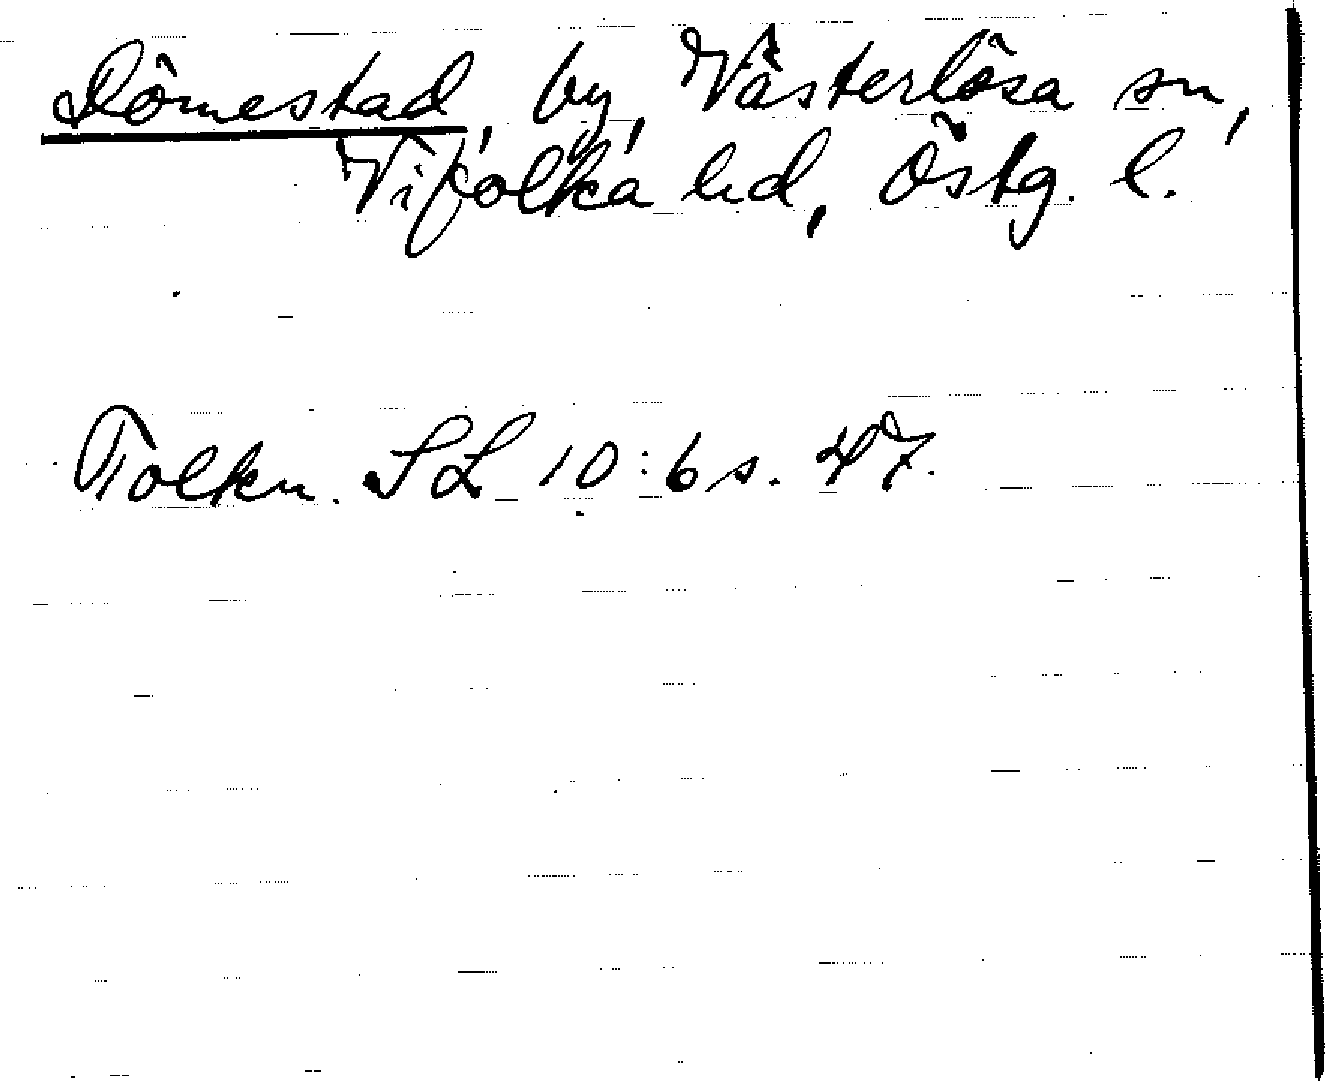 Dömestad, by, Västerlösa sn,
Vifolka hd, Östg. l.
Tolkn. SL 10:6 s. 47.